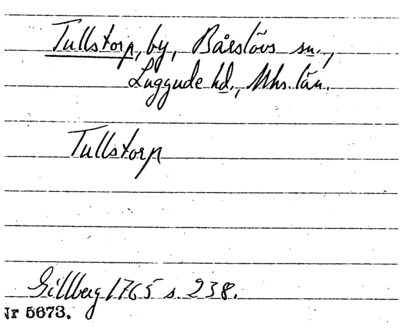 Tullstorp, by, Bårslövs sn.,
Luggude hd., Mhs. län.
Tullstorp
Gillberg 1765 s. 238.
Nr 5673.